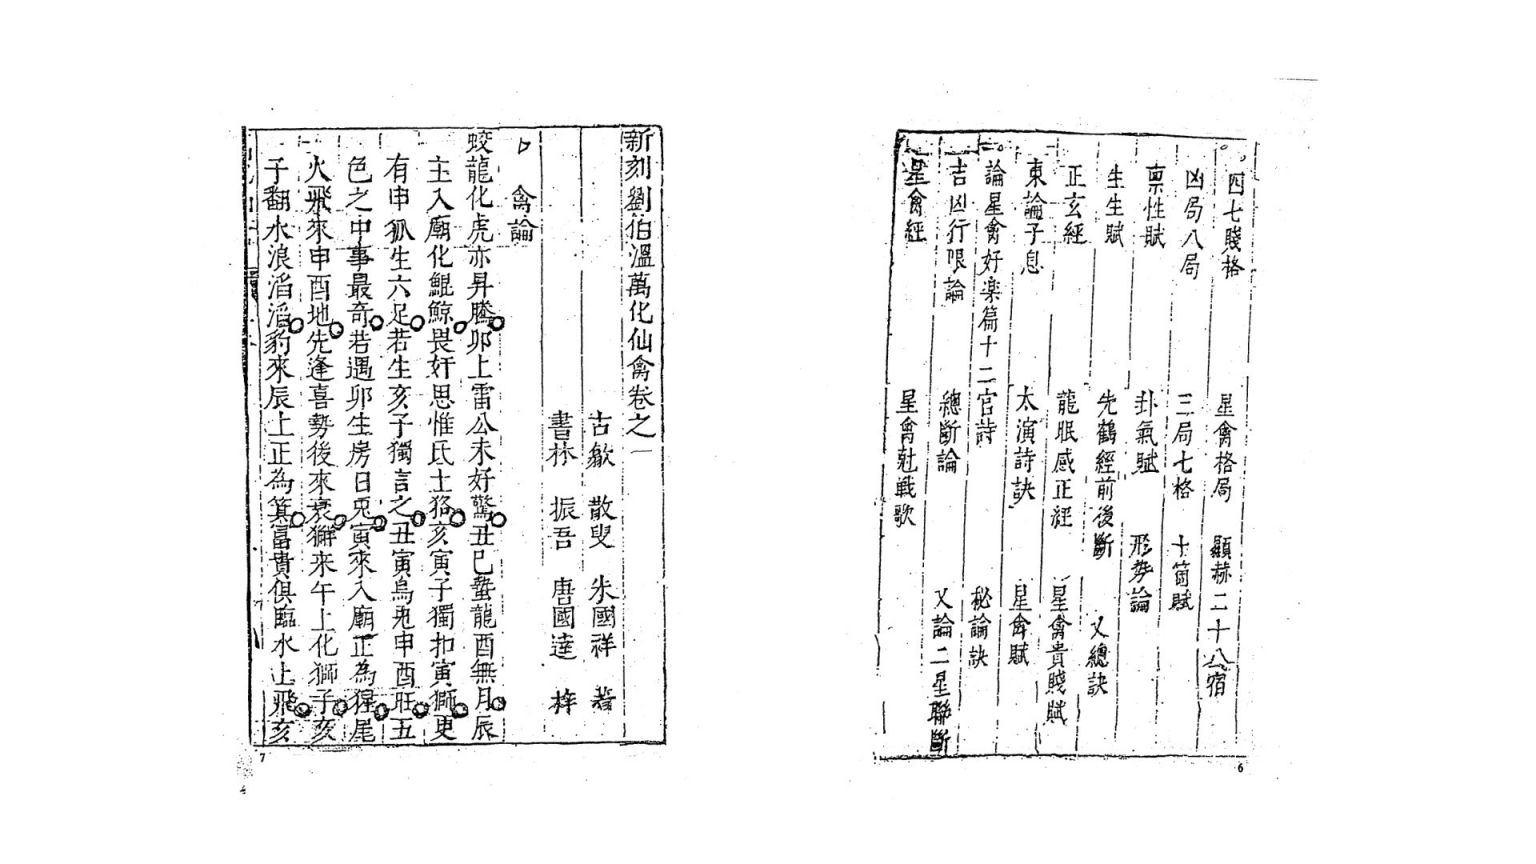 四七賤格 星禽格局 顯赫二十八宿
凶局八局 三局七格 十箇賦
稟性賦 卦氣賦 形勢論
生生賦 先鶴經前後斷 又總訣
正玄經 龍眠感正經 星禽貴賤賦
東論子息 太演詩訣 星禽賦
論星禽好楽篇十二宮詩 秘論訣
吉凶行限論 總斷論 又論二星聯斷
星禽經 星禽尅戦歌
6
新刻劉伯溫萬化仙禽卷之一
古歙 散叟 朱國祥 著
書林 振吾 唐國達 梓
禽論
蛟龍化虎亦昇騰卯上雷公未好驚丑巳蟄龍酉無月辰
主入廟化鯤鯨畏奸思惟氐土狢亥寅子獨扣寅獅更
有申狐生六足若生亥子獨言之丑寅烏兎申酉旺五
色之中事最奇若遇卯生房日兎寅來入廟正為猩尾
火飛來申酉地先逢喜勢後來衰獬来午上化獅子亥
子翻水浪滔滔豹來辰上正為箕富貴俱臨水上飛亥
7